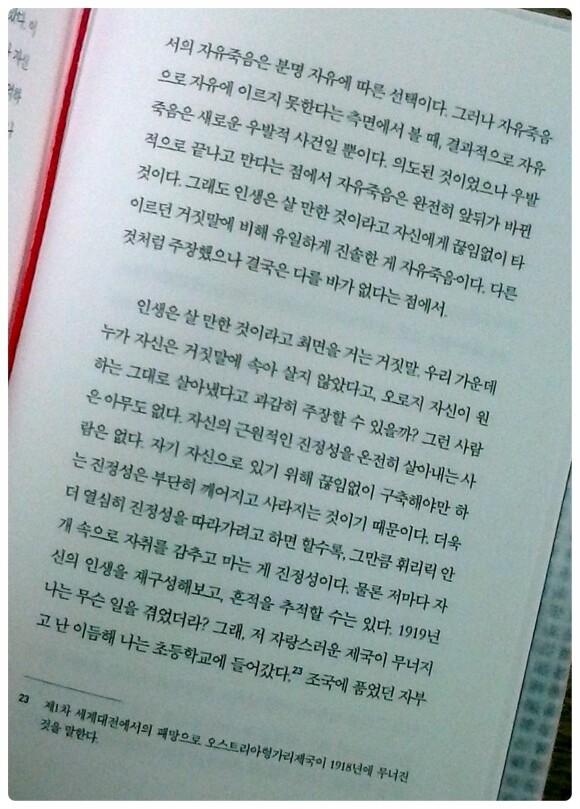 서의 자유죽음은 분명 자유에 따른 선택이다. 그러나 자유죽음
으로 자유에 이르지 못한다는 측면에서 볼 때, 결과적으로 자유
죽음은 새로운 우발적 사건일 뿐이다. 의도된 것이었으나 우발
적으로 끝나고 만다는 점에서 자유죽음은 완전히 앞뒤가 바뀐
것이다. 그래도 인생은 살 만한 것이라고 자신에게 끊임없이 타
이르던 거짓말에 비해 유일하게 진솔한 게 자유죽음이다. 다른
것처럼 주장했으나 결국은 다를 바가 없다는 점에서.
인생은 살 만한 것이라고 최면을 거는 거짓말. 우리 가운데
누가 자신은 거짓말에 속아 살지 않았다고, 오로지 자신이 원
하는 그대로 살아냈다고 과감히 주장할 수 있을까? 그런 사람
은 아무도 없다. 자신의 근원적인 진정성을 온전히 살아내는 사
람은 없다. 자기 자신으로 있기 위해 끊임없이 구축해야만 하
는 진정성은 부단히 깨어지고 사라지는 것이기 때문이다. 더욱
더 열심히 진정성을 따라가려고 하면 할수록, 그만큼 휘리릭 안
개 속으로 자취를 감추고 마는 게 진정성이다. 물론 저마다 자
신의 인생을 재구성해보고, 흔적을 추적할 수는 있다. 1919년
나는 무슨 일을 겪었더라? 그래, 저 자랑스러운 제국이 무너지
고 난 이듬해 나는 초등학교에 들어갔다.23 조국에 품었던 자부
23 제1차 세계대전에서의 패망으로 오스트리아헝가리제국이 1918년에 무너진
것을 말한다.